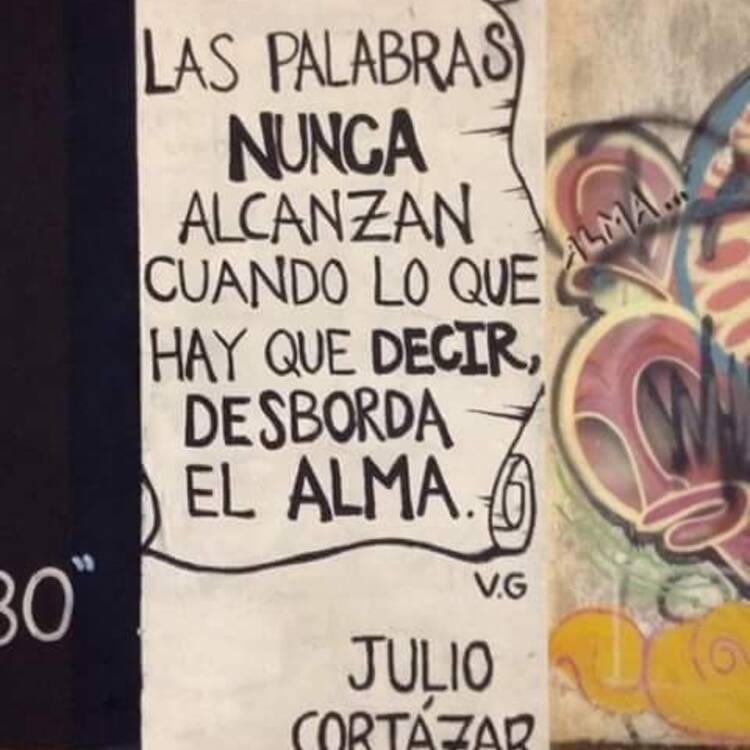 LAS PALABRAS
NUNCA
ALCANZAN
CUANDO LO QUE
HAY QUE DECIR,
DESBORDA
EL ALMA.
V.G
JULIO
CORTÁZAR
BO"
ALMA...